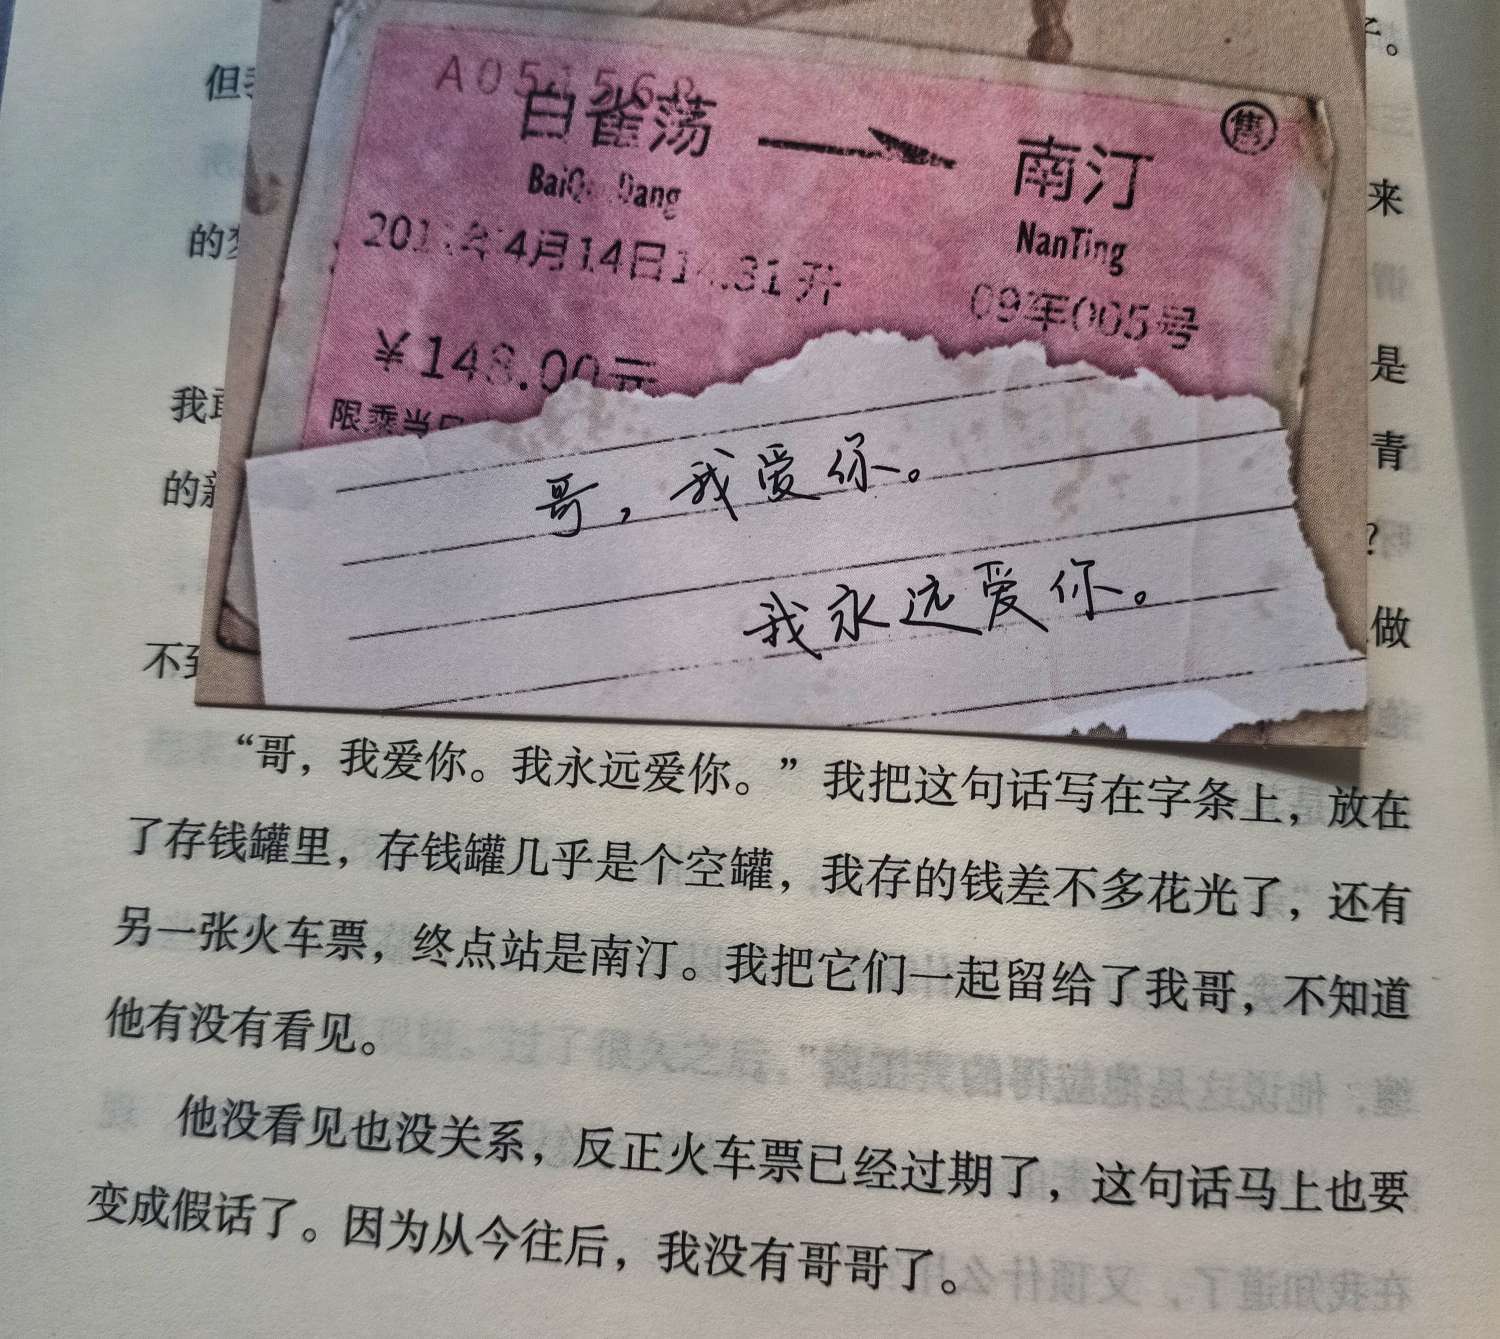 A051568
白雀荡
南汀
售
NanTing
4月14日
09车005号
¥148.00元
限乘当日
哥，我爱你。
我永远爱你。
来
的
是
我
青
的
？
做
不到
“哥，我爱你。我永远爱你。”我把这句话写在字条上，放在
了存钱罐里，存钱罐几乎是个空罐，我存的钱差不多花光了，还有
另一张火车票，终点站是南汀。我把它们一起留给了我哥，不知道
他有没有看见。
他没看见也没关系，反正火车票已经过期了，这句话马上也要
变成假话了。因为从今往后，我没有哥哥了。